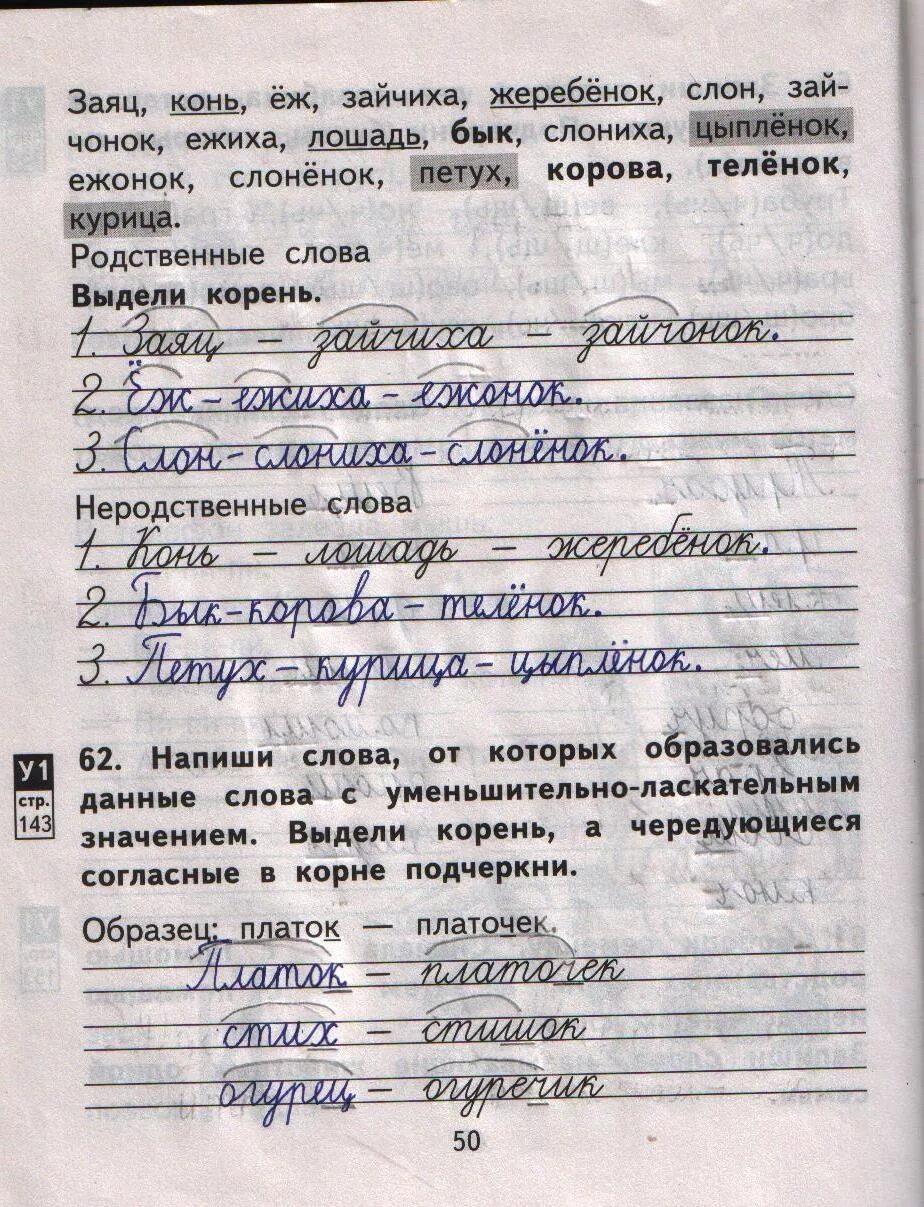 Заяц, конь, ёж, зайчиха, жеребёнок, слон, зай-
чонок, ежиха, лошадь, бык, слониха, цыплёнок,
ежонок, слонёнок, петух, корова, телёнок,
курица.
Родственные слова
Выдели корень.
1. Заяц – зайчиха – зайчонок.
2. Ёж – ежиха – ежонок.
3. Слон – слониха – слонёнок.
Неродственные слова
1. Конь – лошадь – жеребёнок.
2. Бык – корова – телёнок.
3. Петух – курица – цыплёнок.
У1
стр.
143
62. Напиши слова, от которых образовались
данные слова с уменьшительно-ласкательным
значением. Выдели корень, а чередующиеся
согласные в корне подчеркни.
Образец: платок — платочек.
Платок – платочек
стих – стишок
огурец – огуречик
50